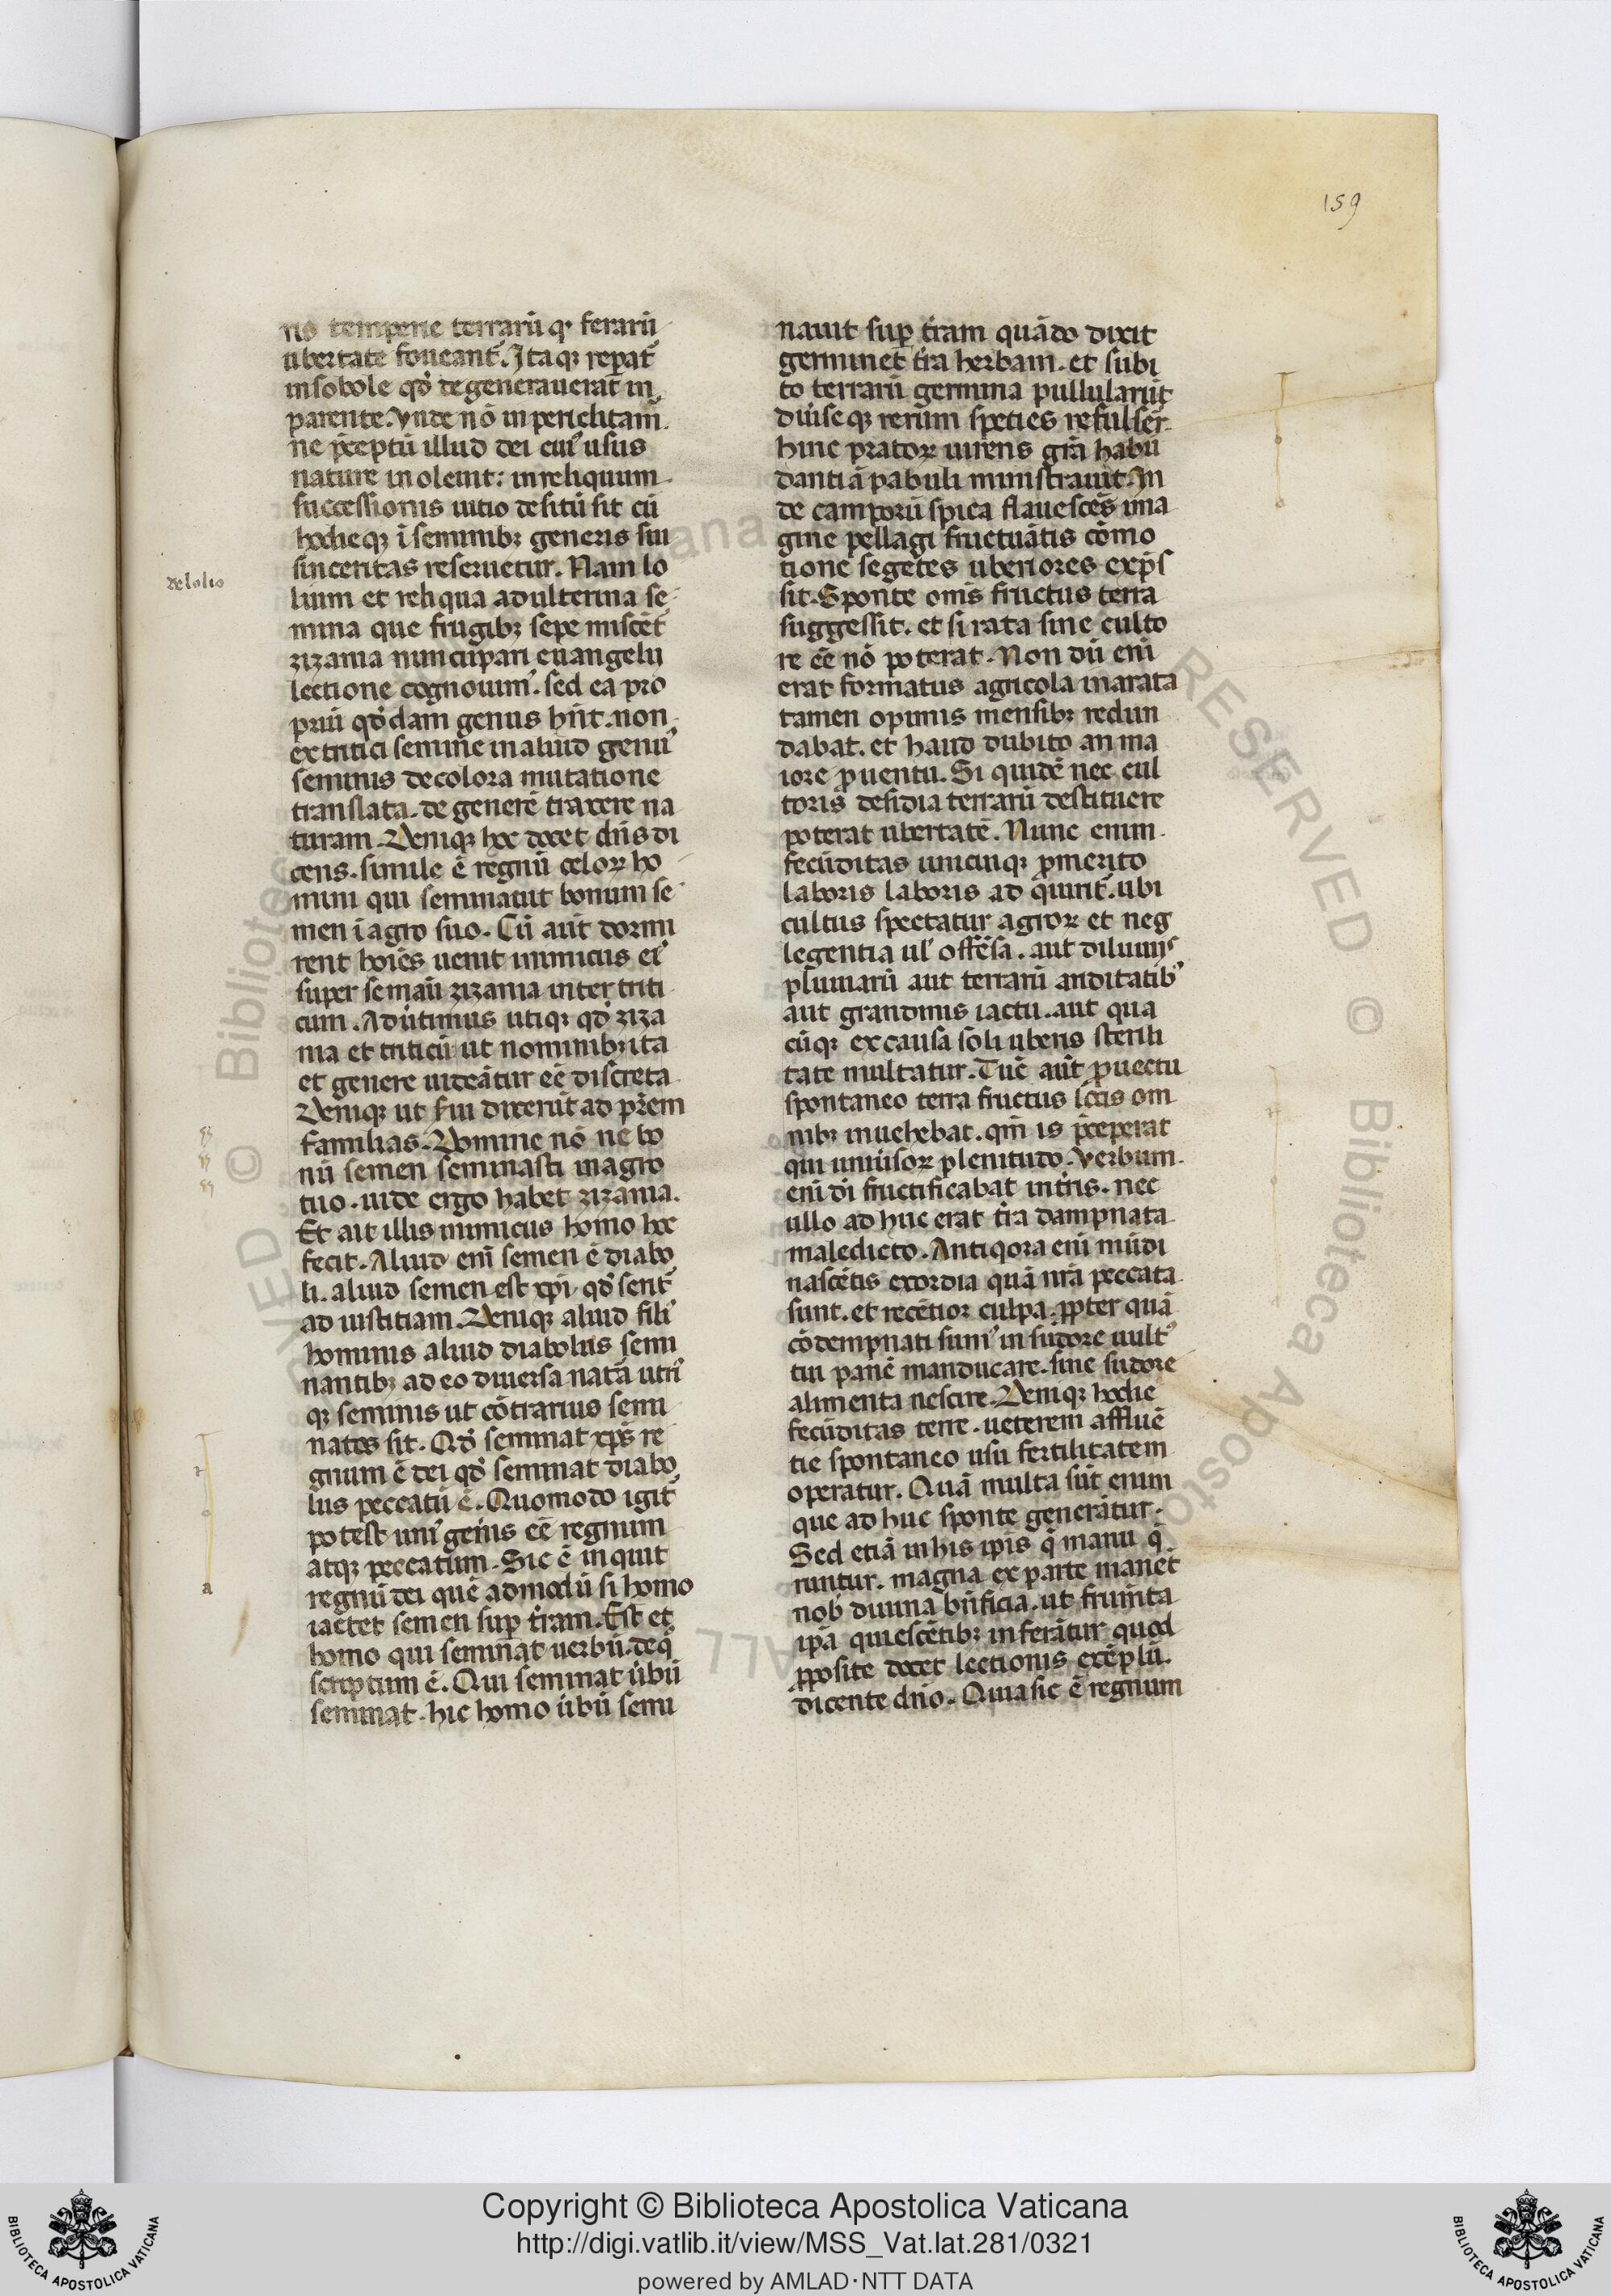 159
ris temperie terrarū q; ferarū
ubertate foueant᷑. Itaq; repat᷑
insobole qd̓ degenerauerat in
parente. Vnde nō inperichitam̄
ne p̄ceptū illud dei cui᷒ usus
nature inoleuit: inreliquum
successionis uitio desitū sit cū
hodieq; ī seminib; generis sui
sinceritas reseruetur. Nam lo
de lolio
lium et reliqua adulterina se
mina que frugib; sepe miscēt᷑
zizania nuncupari euangelij
lectione cognouim᷒. sed ea pro
priū qd̓dam genus hn̄t. non
extritici semine inaliud genu᷒
seminis decolora mutatione
translata. de generē traxere na
turam. Deniq; hoc docet dn̄s di
cens. simile ē regnū celoꝝ ho
mini qui seminauit bonum se
men ī agro suo. Cū aūt dormi
rent hoīes uenit inimicus ei᷒
super semauī zizania inter triti
cum. Aduītimus utiq; qd̓ ziza
nia et triticū ut nominib; ita
et genere uideātur eē discreta
Deniq; ut s̄ui dixerūt ad prēm
familias. Domine nō ne bo
nū semen seminasti inagro
tuo. uīde ergo habet zizania.
Et ait illis inimicus homo hoc
fecit. Aliud enī semen ē diabo
li. aliud semen est xp̄i. qd̓ serit᷑
ad iustitiam. Deniq; aliud fili᷒
hominis aliud diabolus semi
nantib; ad eo diuersa natā utri᷒
q; seminis ut cōtrarius semi
natos sit. Qd̓ seminat xp̄s re
gnum ē dei qd̓ seminat diabo
lus peccatū ē. Quomodo igit᷑
potest uni᷒ gen̄is eē regnum
atq; peccatum. Sic ē inquit
regnū dei quē admodū si homo
iactet semen sup̄ t̄ram. Est et
homo qui seminat uerbū. deq̓
scriptum ē. Qui seminat ūbū
seminat. hic homo ūbū semi
nauit sup̄ t̄ram quādo dixit
germinet t̄ra herbam. et subi
to terrarū germina pullularūt
diūseq; rerum species refulser̄
hinc pratoꝝ uirens grā habū
dantiā pabuli ministrauit. In
de camporū spica flauescēs ima
gine pellagi fluctuātis cōmo
tione segetes uberiores exp̄s
sit. Sponte omīs fructus terra
suggessit. et si rata sine culto
re eē nō poterat. Non dū enī
erat formatus agricola inarata
tamen opimis mensib; redun
dabat. et haud dubito an ma
iore ꝓuentu. Si quidē nec cul
toris desidia terrarū destituere
poterat ubertatē. Nunc enim
fecūditas unicuiq; ꝓmerito
laboris laboris ad q̄irit᷑. ubi
cultus spectatur agroꝝ et neg
legentia ul᷒ offēsa. aut diluuiis
pluuiarū aut terrarū ariditatib᷒
aut grandinis iactu. aut qua
cūq; excausa soli uberis sterili
tate multatur. Tūc aūt ꝓuectu
spontaneo terra fructus locis om
nib; inuehebat. qm̄ is p̄ceperat
qui uniūsoꝝ plenitudo. Verbum
enī dī fructificabat int̄ris. nec
ullo ad huc erat t̄ra dampnata
maledicto. Antiqora enī mūdi
nascētis exordia quā nrā peccata
sunt. et recētior culpa. ꝓpter quā
cōdempnati sum᷒ in sudore uult᷒
tui panē manducare. sine sudore
alimenta nescire. Deniq; hodie
fecūditas terre. ueterem affluē
tie spontaneo usu fertilitatem
operatur. Quā multa sūt enim
que ad huc sponte generātur.
Sed etiā inhis ip̄is q̓ manu q̓
runtur. magna ex parte manēt
nob᷒ diuina bn̄ficia. ut frum̄ta
ip̄a quiescētib; inferātur quod
ꝓposite docet lectionis exēplū.
dicente dn̄o. Quia sic ē regnum
Copyright © Biblioteca Apostolica Vaticana
http://digi.vatlib.it/view/MSS_Vat.lat.281/0321
powered by AMLAD·NTT DATA